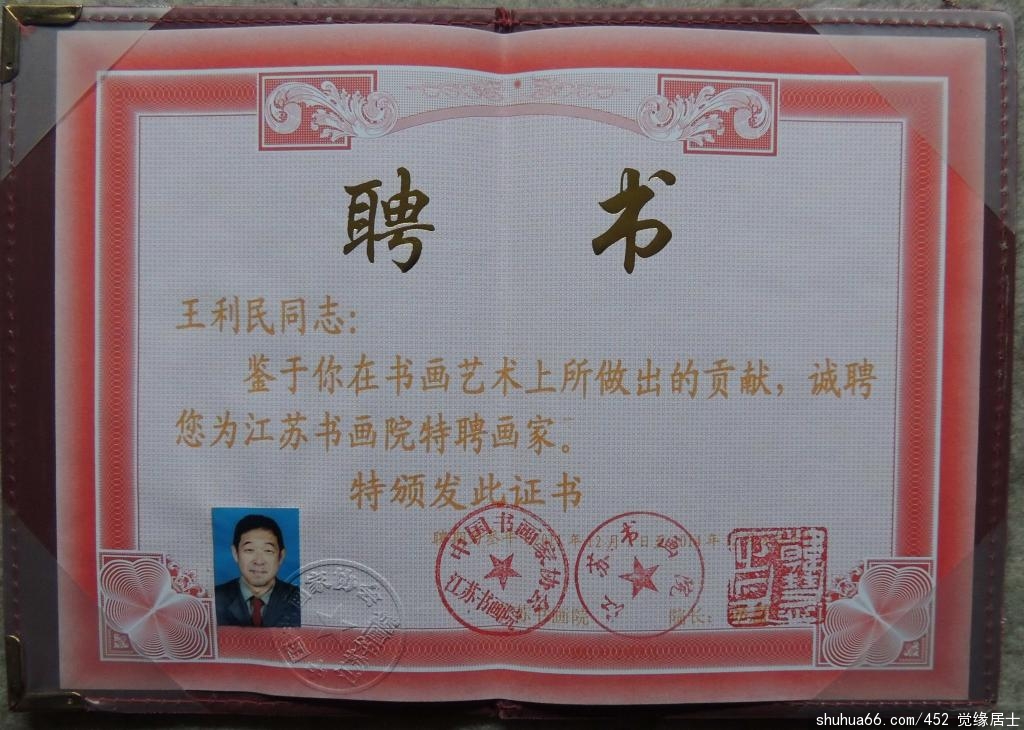 聘 书
王利民同志：
鉴于你在书画艺术上所做出的贡献，诚聘
您为江苏书画院特聘画家。
特颁发此证书
中国书画家协会
江苏书画院
江苏书画院
苏书画院
院长：
shuhua66.com/452 觉缘居士